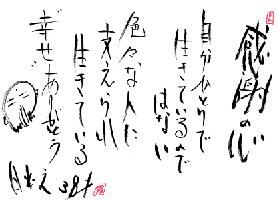 感謝の心
自分ひとりで
生きているのでは
ない
色々な人に
支えられ
生きている
幸せありがとう